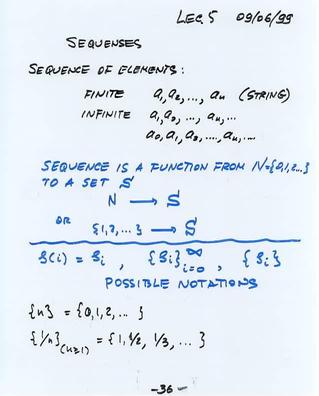 LEC. 5 09/06/99
SEQUENSES
SEQUENCE OF ELEMENTS:
FINITE a₁,a₂,..., aₙ (STRING)
INFINITE a₁,a₂, ..., aₙ,...
a₀,a₁,a₂,....,aₙ,...
SEQUENCE IS A FUNCTION FROM N={0,1,2...}
TO A SET S
N → S
OR
{1,2,...} → S
S(i) = Sᵢ , {Sᵢ}ᵢ₌₀^∞ , {Sᵢ}
POSSIBLE NOTATIONS
{n} = {0,1,2,... }
{1/n}(n≥1) = {1, 1/2, 1/3, ... }
-36-